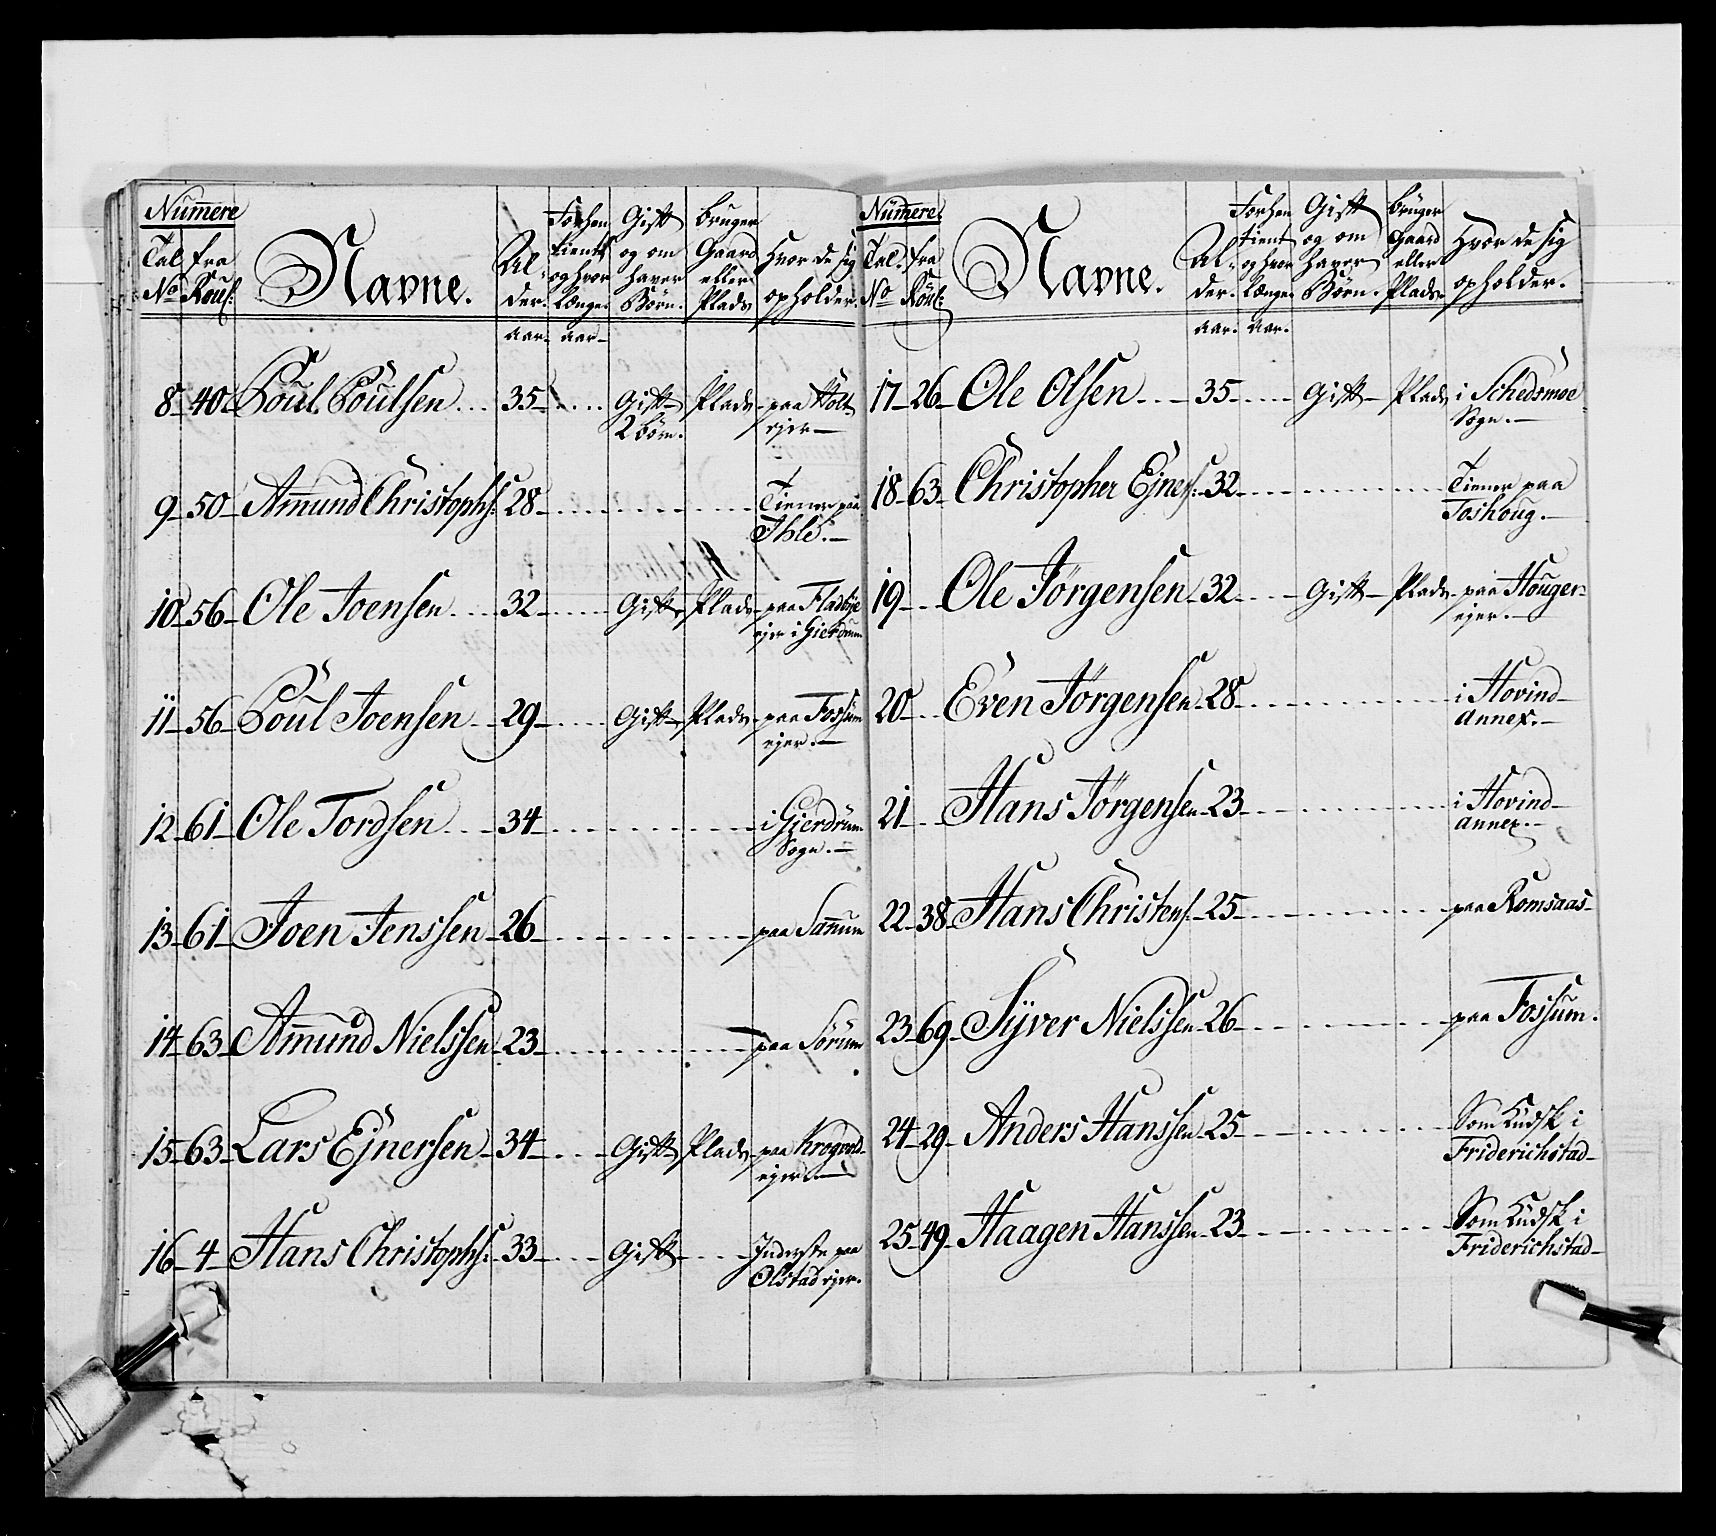 Numere
Tal No
fra Roul:
Navne.
Al-
der.
aar.
Forhen
tient
og hvor
Længe.
aar
Gift
og om
haver
Børn.
bruger
Gaard
eller
Plads
Hvor de sig
opholder.
8 - 40 - Poul Poulsen ... 35 - .... Gift - Plads - paa Holt
2 børn. ejer -
9 - 50 - Amund Christophs: 28 - ........ Tiener paa
Ihle. -
10 - 56 - Ole Joensen .... 32 - .... Gift - Plads - paa Fladbye
ejer i Gierdrum
11 - 56 - Poul Joensen - 29 - .... Gift - Plads - paa Fossum
ejer. -
12 - 61 - Ole Tordsen ... 34 - ........ i Gierdrum
Sogn. -
13 - 61 - Joen Jenssen - 26 - ........ paa Sanum
14 - 63 - Amund Nielssen - 23 - ........ paa Sørum
15 - 63 - Lars Ejnersen - 34 - ... Gift Plads - paa Krogvold
ejer -
16 - 4 - Hans Christophs: 33 - .... Gift - .... Inderste paa
Olstad ejer.
Numere.
Tal. No
fra Roul:
Navne.
Al-
der.
aar.
Forhen
tient
og hvor
Længe.
aar.
Gift
og om
haver
Børn.
bruger
Gaard
eller
Plads.
Hvor de sig
opholder.
17 - 26 - Ole Olsen ... 35 - .... Gift - Plads i Schedsmoe
Sogn. -
18 - 63 - Christopher Ejners: 32 - ........ Tiener paa
Toshoug. -
19 - .. Ole Jørgensen - 32 - .... Gift - Plads - paa Houger-
ejer. -
20 - .. Even Jørgensen - 28 - ........ i Hovind
annex. -
21 - .. Hans Jørgensen - 23 - ........ i Hovind
annex. -
22 - 38 - Hans Christens: - 25 - ........ paa Romsaas
23 - 69 - Syver Nielssen - 26 - ........ paa Fossum.
24 - 29 - Anders Hanssen - 25 - ........ Som Kudsk i
Friderichstad -
25 - 49 - Haagen Hanssen - 23 - ........ Som Kudsk i
Friderichstad -